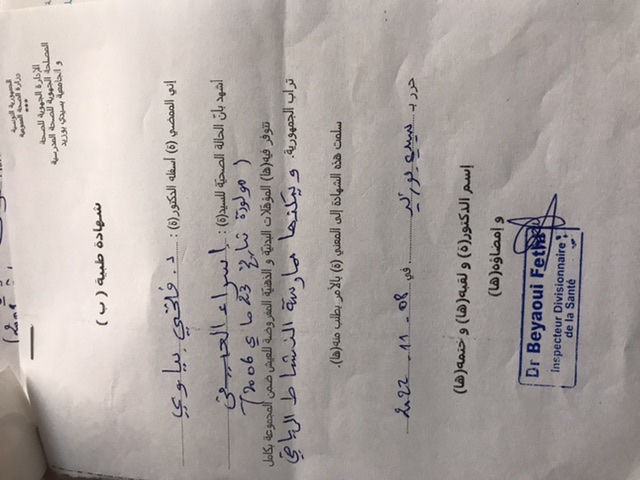 الجمهورية التونسية
وزارة الصحة العمومية
***
الإدارة الجهوية للصحة
المصلحة الجهوية للصحة المدرسية
و الجامعية بسيدي بوزيد
شهادة طبية ( ب )
إني الممضي (ة) أسفله الدكتور(ة) : د. فاتحي بياوي
أشهد بأن الحالة الصحية للسيد(ة) : إسراء
( مولودة بتاريخ 23 ماي 2006 )
تتوفر فيه(ها) المؤهلات البدنية و الذهنية المفروضة للعيش ضمن المجموعة بكامل
تراب الجمهورية. و يمكنها ممارسة النشاط الرياضي
سلمت هذه الشهادة إلى المعني (ة) بالأمر بطلب منه(ها).
حرر بـ سيدي بوزيد في 08 - 11 - 2022
إسم الدكتور(ة) و لقبه(ها) و ختمه(ها)
و إمضاؤه(ها)
Dr Beyaoui Fethi
Inspecteur Divisionnaire
de la Santé